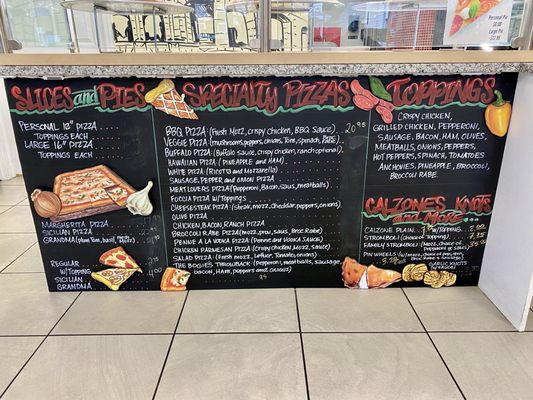 Personal Pizza
Large Pizza
SLICES and PIES
PERSONAL 12" PIZZA
TOPPINGS EACH
LARGE 16" PIZZA
TOPPINGS EACH
MARGHERITA PIZZA
SICILIAN PIZZA
GRANDMA
REGULAR
W/TOPPING
SICILIAN
GRANDMA
SPECIALTY PIZZAS
BBQ PIZZA (Fresh Motz, crispy chicken, BBQ Sauce) 20.95
VEGGIE PIZZA
BUFFALO PIZZA (Buffalo sauce, crispy chicken, ranch optional)
HAWAIIAN PIZZA (PINEAPPLE and HAM)
WHITE PIZZA (Ricotta and Mozzarella)
SAUSAGE, PEPPER and ONION PIZZA
MEAT LOVERS PIZZA (Pepperoni, Bacon, Saus, meatballs)
FOCCIA PIZZA W/TOPPINGS
CHEESESTEAK PIZZA
OLIVE PIZZA
CHICKEN, BACON, RANCH PIZZA
BROCCOLI RABE PIZZA
PENNE A LA VODKA PIZZA (Penne and Vodka Sauce)
CHICKEN PARMESAN PIZZA
SALAD PIZZA (Fresh Motz, Lettuce, Tomato, onions)
THE BOGIES THROWBACK (Pepperoni, meatballs, sausage,
bacon, ham, peppers and onions)
TOPPINGS
CRISPY CHICKEN,
GRILLED CHICKEN, PEPPERONI,
SAUSAGE, BACON, HAM,
MEATBALLS, ONIONS, PEPPERS,
HOT PEPPERS, SPINACH, TOMATOES
ANCHOVIES, PINEAPPLE, BROCCOLI,
BROCCOLI RABE.
CALZONES, KNOTS
and MORE...
CALZONE PLAIN
STROMBOLI (CHOICE of TOPPING)
FAMILY STROMBOLI
PIN WHEEL
GARLIC KNOTS